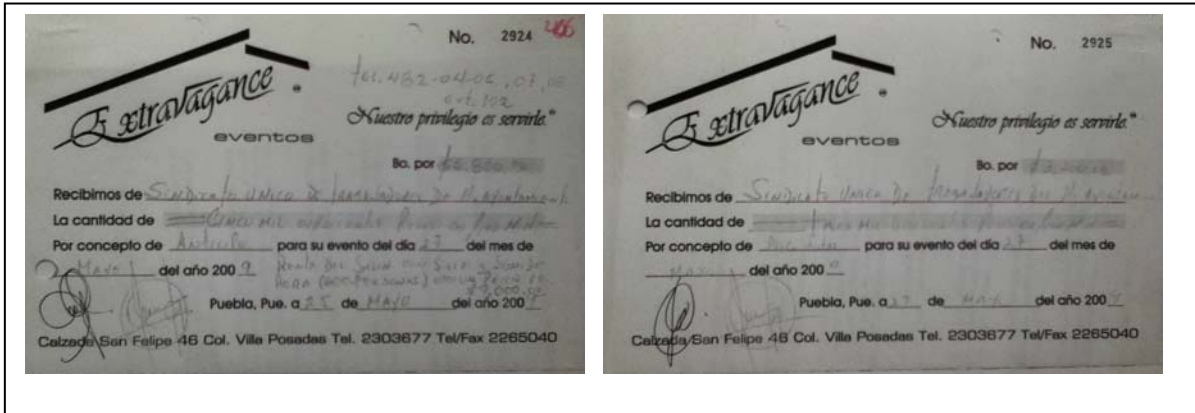 No. 2924
tel. 482-04-06, 07, 08
ext. 102
Extravagance
eventos
"Nuestro privilegio es servirle."
Bo. por
Recibimos de Sindicato Unico de Trabajadores De H. Ayuntamient
La cantidad de Cinco mil ochocientos Pesos
Por concepto de Anticipo para su evento del día 27 del mes de
Mayo del año 2009 Renta Del Salon con Sillas y
PARA PERSONAS)
Puebla, Pue. a 25 de MAYO del año 2009
Calzada San Felipe 46 Col. Villa Posadas Tel. 2303677 Tel/Fax 2265040
No. 2925
Extravagance
eventos
"Nuestro privilegio es servirle."
Bo. por
Recibimos de Sindicato Unico De Trabajadores Del H. Ayuntam
La cantidad de
Por concepto de para su evento del día 27 del mes de
Mayo del año 2009
Puebla, Pue. a 27 de Mayo del año 2009
Calzada San Felipe 46 Col. Villa Posadas Tel. 2303677 Tel/Fax 2265040